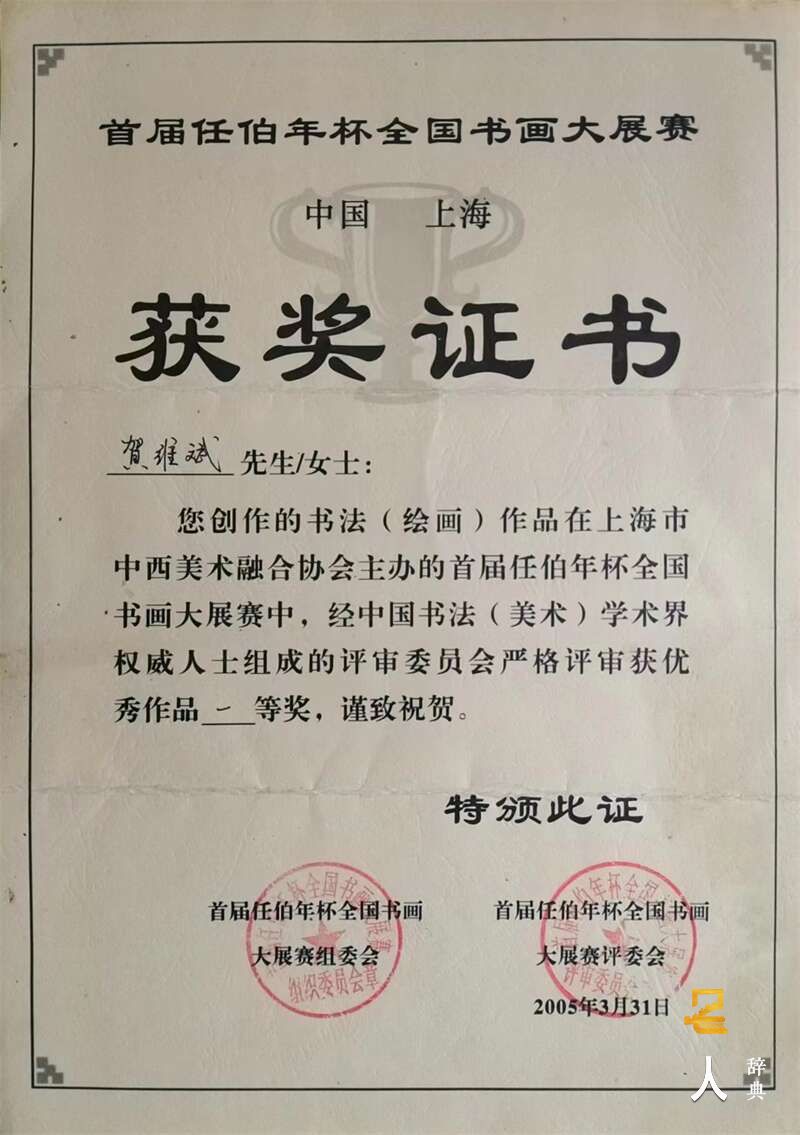 首届任伯年杯全国书画大展赛
中国 上海
获奖证书
贺维斌 先生/女士：
您创作的书法（绘画）作品在上海市
中西美术融合协会主办的首届任伯年杯全国
书画大展赛中，经中国书法（美术）学术界
权威人士组成的评审委员会严格评审获优
秀作品一等奖，谨致祝贺。
特颁此证
首届任伯年杯全国书画
大展赛组委会
组织委员会章
首届任伯年杯全国书画
大展赛评委会
评审委员会
2005年3月31日
人
辞典